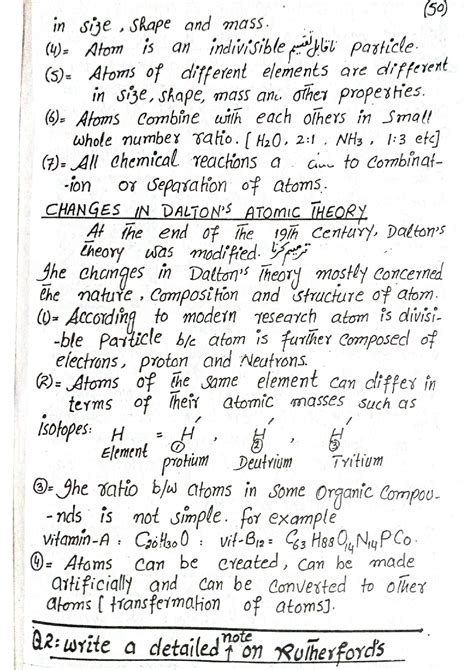 (50)
in size, shape and mass.
(4)= Atom is an indivisible ناقابل تقسیم particle.
(5)= Atoms of different elements are different
in size, shape, mass and other properties.
(6)= Atoms combine with each others in small
whole number ratio. [H2O, 2:1, NH3, 1:3 etc]
(7)= All chemical reactions a to combinat-
-ion or separation of atoms.
CHANGES IN DALTON'S ATOMIC THEORY
At the end of the 19th century, Dalton's
theory was modified. ترمیم کرنا
The changes in Dalton's theory mostly concerned
the nature, composition and structure of atom.
(1)= According to modern research atom is divisi-
-ble particle b/c atom is further composed of
electrons, proton and Neutrons.
(2)= Atoms of the same element can differ in
terms of their atomic masses such as
isotopes: H = H', H', H'
Element ① ② ③
protium Deutrium Tritium
③= The ratio b/w atoms in some organic compou-
-nds is not simple. for example
vitamin-A: C20H30O : vit-B12= C63H88O14N14PCo.
④= Atoms can be created, can be made
artificially and can be converted to other
atoms [transfermation of atoms].
Q2: write a detailed note on Rutherford's